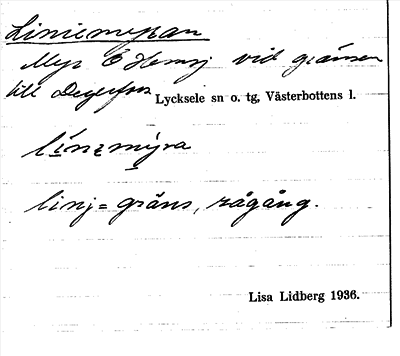 Liniemyran
Myr Ö Hemsj vid gränsen
till Degerfors Lycksele sn o. tg, Västerbottens l.
línemýra
linj = gräns, rågång.
Lisa Lidberg 1936.